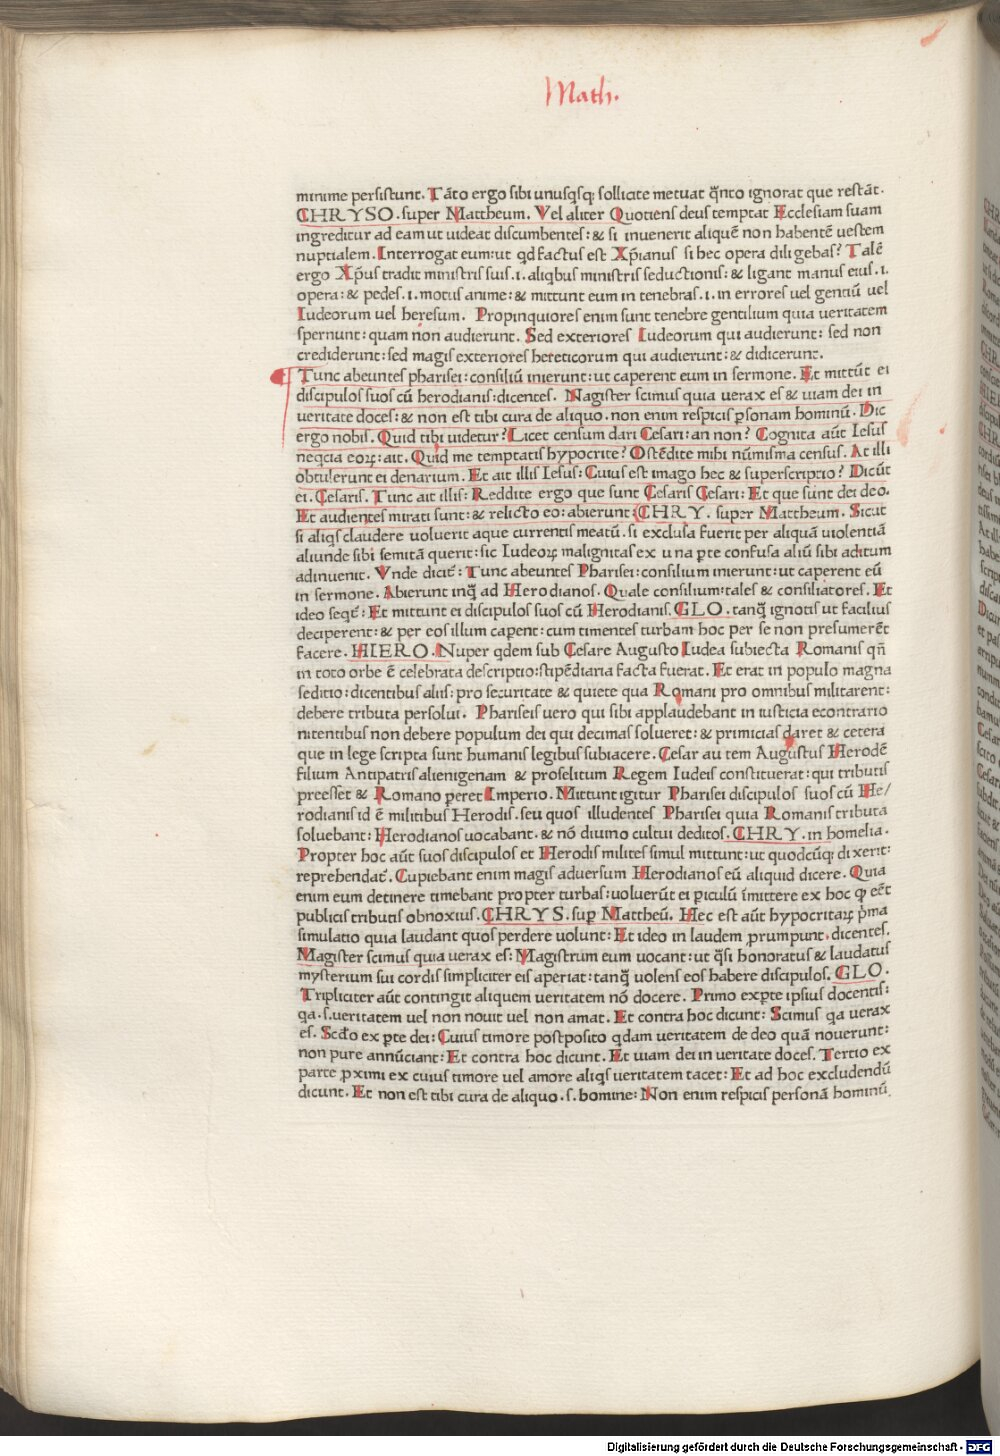 Math.
minime persistunt. Tãto ergo sibi unusqsq; sollicite metuat q̃nto ignorat que restãt.
CHRYSO. super Mattheum. Vel aliter Quotiens deus temptat Ecclesiam suam
ingreditur ad eam ut uideat discumbentes: & si inuenerit aliquẽ non habentẽ uestem
nuptialem. Interrogat eum: ut qd factus est Xp̃ianus si hec opera diligebas? Talẽ
ergo Xp̃us tradit ministris suis .i. aliqbus ministris seductionis: & ligant manus eius .i.
opera: & pedes .i. motus anime: & mittunt eum in tenebras .i. in errores uel gentiũ uel
Iudeorum uel heresum. Propinquiores enim sunt tenebre gentilium quia ueritatem
spernunt: quam non audierunt. Sed exteriores Iudeorum qui audierunt: sed non
crediderunt: sed magis exteriores hereticorum qui audierunt: & didicerunt.
Tunc abeuntes pharisei: consiliũ inierunt: ut caperent eum in sermone. Et mittũt ei
discipulos suos cũ herodianis: dicentes. Magister scimus quia uerax es & uiam dei in
ueritate doces: & non est tibi cura de aliquo. non enim respicis ꝑsonam hominũ. Dic
ergo nobis. Quid tibi uidetur? Licet censum dari Cesari: an non? Cognita aũt Iesus
neqcia eoꝝ: ait. Quid me temptatis hypocrite? Ostẽdite mihi nũmisma census. At illi
obtulerunt ei denarium. Et ait illis Iesus: Cuius est imago hec & superscriptio? Dicũt
ei. Cesaris. Tunc ait illis: Reddite ergo que sunt Cesaris Cesari: Et que sunt dei deo.
Et audientes mirati sunt: & relicto eo: abierunt: CHRY. super Mattheum. Sicut
si aliqs claudere uoluerit aque currentis meatũ. si exclusa fuerit per aliquã uiolentiã
aliunde sibi semitã querit: sic Iudeoꝝ malignitas ex una ꝑte confusa aliũ sibi aditum
adinuenit. Vnde dicit̃: Tunc abeuntes Pharisei: consilium inierunt: ut caperent eũ
in sermone. Abierunt inq̃ ad Herodianos. Quale consilium: tales & consiliatores. Et
ideo seqt̃: Et mittunt ei discipulos suos cũ Herodianis. GLO. tanq̃ ignotis ut facilius
deciperent: & per eos illum caꝑent: cum timentes turbam hoc per se non presumerẽt
facere. HIERO. Nuper qdem sub Cesare Augusto Iudea subiecta Romanis qñ
in toto orbe ẽ celebrata descriptio: stipẽdiaria facta fuerat. Et erat in populo magna
seditio: dicentibus aliis: pro securitate & quiete qua Romani pro omnibus militarent:
debere tributa persolui. Phariseis uero qui sibi applaudebant in iusticia econtrario
nitentibus non debere populum dei qui decimas solueret: & primicias daret & cetera
que in lege scripta sunt humanis legibus subiacere. Cesar au tem Augustus Herodẽ
filium Antipatris alienigenam & proselitum Regem Iudeis constituerat: qui tributis
preesset & Romano ꝑeret Imperio. Mittunt igitur Pharisei discipulos suos cũ He/
rodianis id ẽ militibus Herodis. seu quos illudentes Pharisei quia Romanis tributa
soluebant: Herodianos uocabant. & nõ diuino cultui deditos. CHRY. in homelia.
Propter hoc aũt suos discipulos et Herodis milites simul mittunt: ut quodcũq; dixerit:
reprehendat̃. Cupiebant enim magis aduersum Herodianos eũ aliquid dicere. Quia
enim eum detinere timebant propter turbas: uoluerũt ei ꝑiculũ ĩmittere ex hoc ꝙ eẽt
publicis tributis obnoxius. CHRYS. suꝑ Mattheũ. Hec est aũt hypocritaꝝ p̃ma
simulatio quia laudant quos perdere uolunt: Et ideo in laudem ꝓrumpunt. dicentes.
Magister scimus quia uerax es: Magistrum eum uocant: ut q̃si honoratus & laudatus
mysterium sui cordis simpliciter eis aperiat: tanq̃ uolens eos habere discipulos. GLO.
Tripliciter aũt contingit aliquem ueritatem nõ docere. Primo ex ꝑte ipsius docentis:
qa .s. ueritatem uel non nouit uel non amat. Et contra hoc dicunt: Scimus qa uerax
es. Scdo ex ꝑte dei: Cuius timore postposito qdam ueritatem de deo quã nouerunt:
non pure annũciant: Et contra hoc dicunt. Et uiam dei in ueritate doces. Tertio ex
parte ꝓximi ex cuius timore uel amore aliqs ueritatem tacet: Et ad hoc excludendũ
dicunt. Et non est tibi cura de aliquo .s. homine: Non enim respicis personã hominũ.
Digitalisierung gefördert durch die Deutsche Forschungsgemeinschaft - DFG